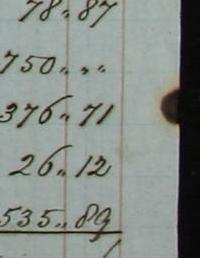 78〃87
750〃〃
376〃71
26〃12
535〃89